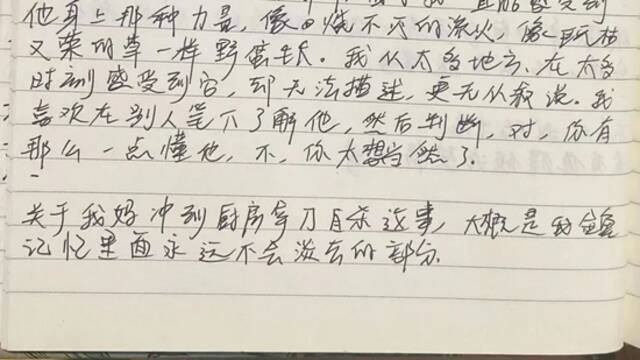 他身上那种力量,像烧不灭的流火,像一玩枯
又荣的草一样野蛮生长。我从太多地方、在太多
时刻感受到它,却无法描述,更无从叙说。我
喜欢在别人笔下了解他,然后判断,对,你有
那么一点懂他,不,你太想当然了。
关于我妈冲到厨房拿刀自杀这事,大概是我
记忆里面永远不会淡去的部分.